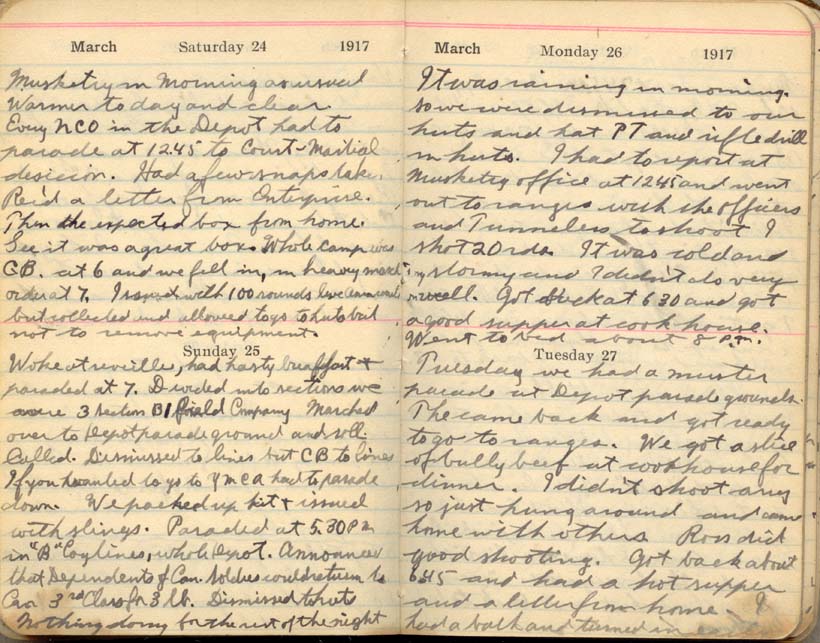 March Saturday 24 1917
Musketry in Morning as usual
Warmer to day and clear
Every NCO in the Depot had to
parade at 12.45 to Court-Martial
desicion. Had a few snaps take.
Rec'd a letter from Enterprise.
Then the expected box from home.
Gee it was a great box. Whole camp was
C.B. at 6 and we fell in, in heavy march
order at 7. Issued with 100 rounds live
but collected and allowed to go to huts but
not to remove equipment.
Sunday 25
Woke at reveille, had hasty breakfast +
paraded at 7. Divided into sections we
were 3 section B1 Company Marched
over to Depot parade ground and roll
Called. Dismissed to lines but CB to lines
If you wanted to go to YMCA had to parade
down. We packed up kit + issued
with slings. Paraded at 5.30 PM
in "B" Coy lines, whole Depot. Announced
that Dependents of Can. Soldies could return to
Can 3rd Class for 3 lb. Dismissed to huts
Nothing doing for the rest of the night
March Monday 26 1917
It was raining in morning.
so we were dismissed to our
huts and hat PT and rifle drill
in huts. I had to report at
Musketry office at 1245 and went
out to ranges with the officers
and Tunnelers to shoot I
shot 20 rds. It was cold and
stormy and I didn't do very
well. Got back at 6 30 and got
a good supper at cook house.
Went to bed about 8 P.m.
Tuesday 27
Tuesday we had a muster
parade at Depot parade grounds.
The came back and got ready
to go to ranges. We got a slice
of bully beef at cookhouse for
dinner. I didn't shoot any
so just hung around and came
home with others Ross did
good shooting. Got back about
6.15 and had a hot supper
and a letter from home. I
had a bath and turned in